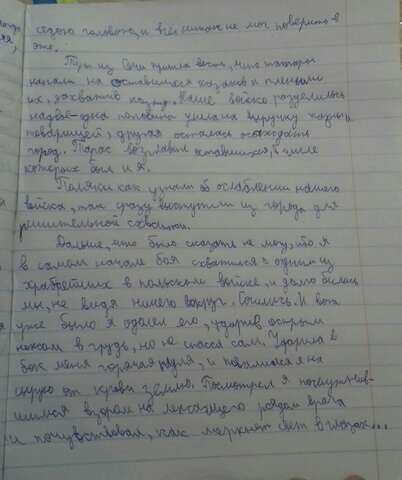 седою головою, и всё никак не мог поверить в
это.
Тут из Сечи пришла весть, что татары
напали на оставшихся казаков и пленили
их, захватив казну. Наше войско разделилось
надвое – одна половина ушла на выручку
товарищей, другая осталась осаждать
город. Тарас возглавил оставшихся, в числе
которых был и я.
Поляки как узнали об ослаблении нашего
войска, так сразу выступили из города для
решительной схватки.
Дальше, что было сказать не могу, ибо я
в самом начале боя схватился с одним из
храбрейших в польском войске, и долго бились
мы, не видя ничего вокруг. Бились. И вот
уже было я одолел его, ударив острым
ножом в грудь, но не спасся сам. Ударила в
бок меня горячая пуля, и повалился я на
сырую от крови землю. Посмотрел я
взором на лежащего рядом врага
и почувствовал, как меркнет свет в глазах...